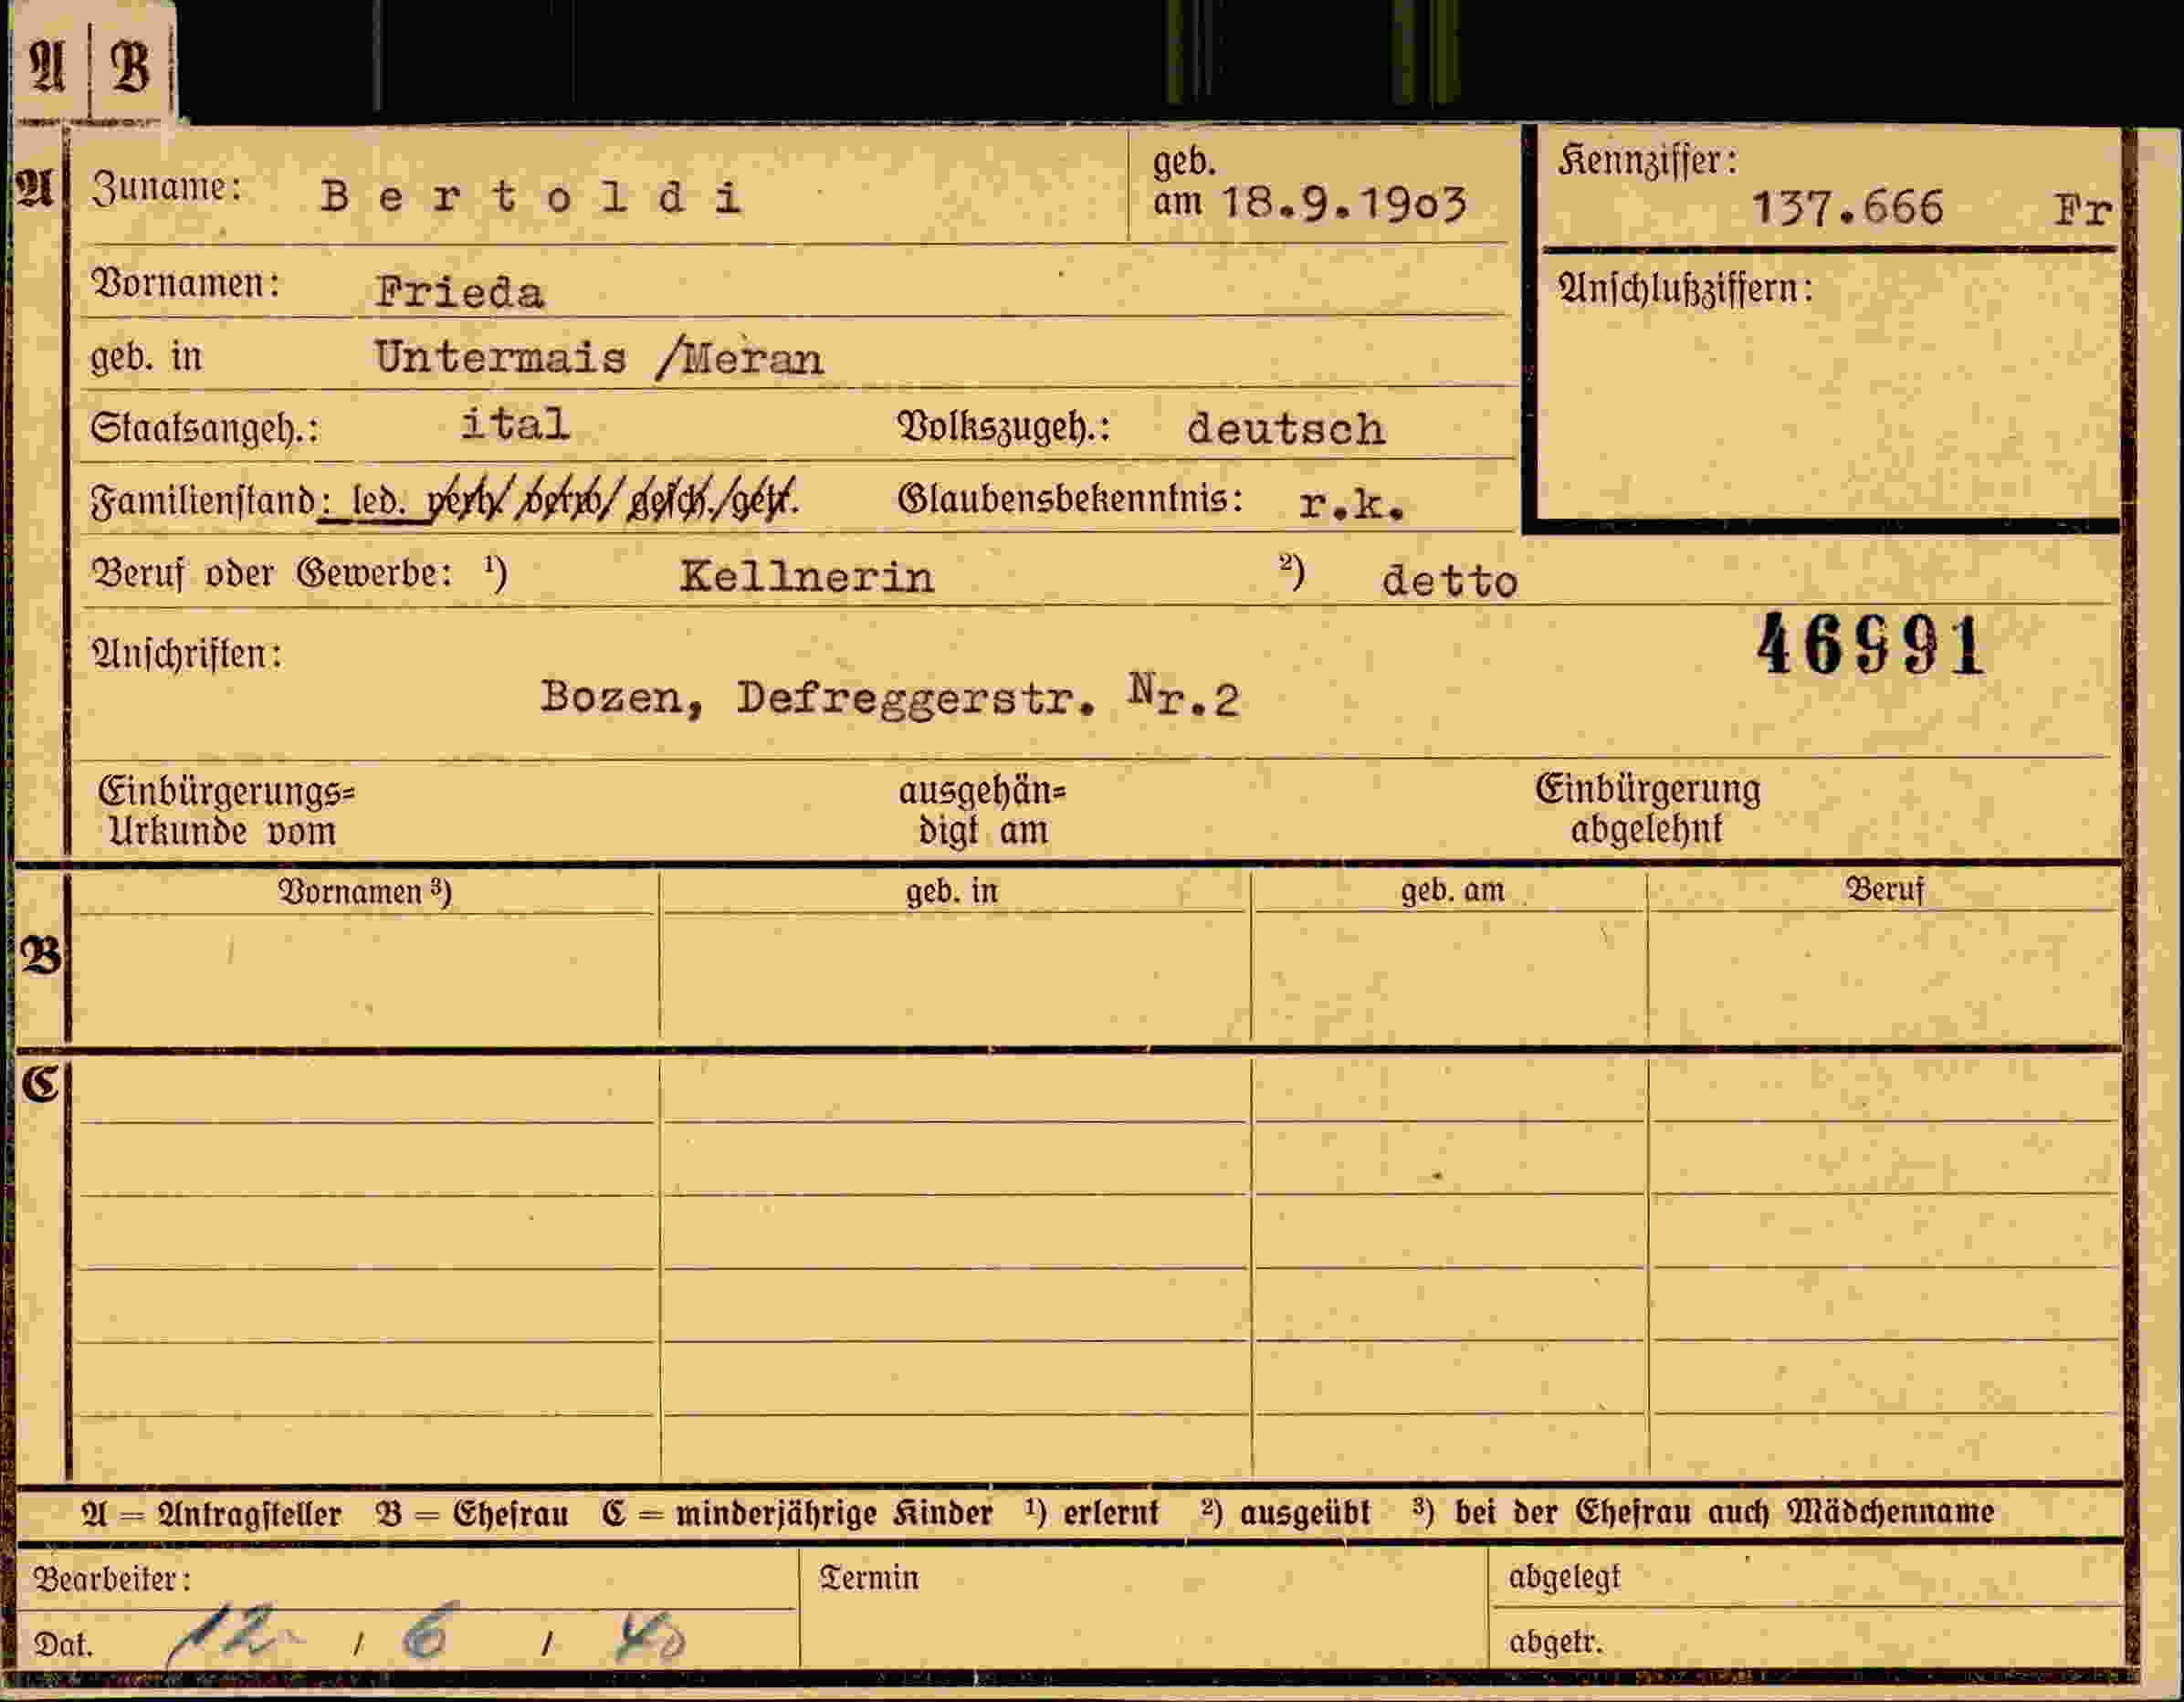 A B
A Zuname: Bertoldi geb. am 18.9.1903 Kennziffer: 137.666 Fr
Vornamen: Frieda Anschlußziffern:
geb. in Untermais /Meran
Staatsangeh.: ital Volkszugeh.: deutsch
Familienstand: led. verh. verw. gesch./getr. Glaubensbekenntnis: r.k.
Beruf oder Gewerbe: ¹) Kellnerin ²) detto
46991
Anschriften:
Bozen, Defreggerstr. Nr.2
Einbürgerungs= ausgehän= Einbürgerung
Urkunde vom digt am abgelehnt
Vornamen ³) geb. in geb. am Beruf
B
C
A = Antragsteller B = Ehefrau C = minderjährige Kinder ¹) erlernt ²) ausgeübt ³) bei der Ehefrau auch Mädchenname
Bearbeiter: Termin abgelegt
Dat. 12 / 6 / 40 abgetr.